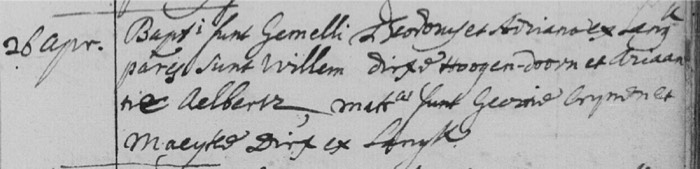 26 Apr. Baptⁱ sunt Gemelli Theodorus et Adriana ex Langᵏ
parēs sunt Willem dirxe Hoogen-doorn et Ariaan
tie Aelbertz, matrᵉˢ sunt et
Maeyke Dirx ex Langk.